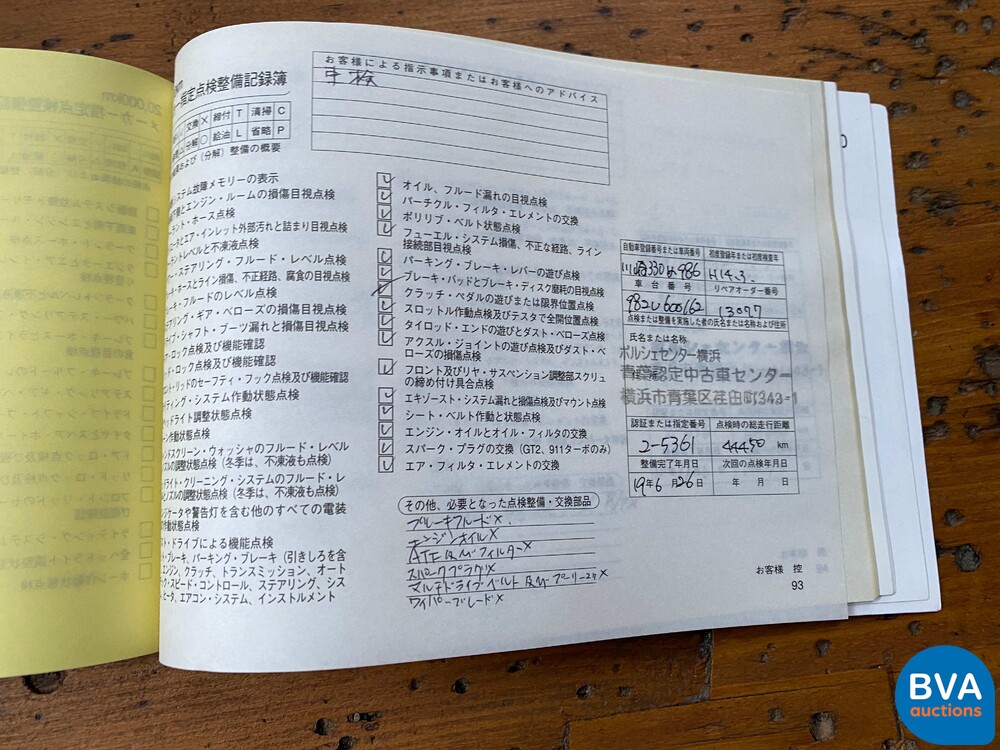 20,000km
km
指定点検整備記録簿
交換 × 締付 T 清掃 C
分解 ○ 給油 L 省略 P
および(分解)整備の概要
お客様による指示事項またはお客様へのアドバイス
車検
ステム故障メモリーの表示
とエンジン・ルームの損傷目視点検
ラント・ホース点検
ータとエア・インレット外部汚れと詰まり目視点検
ラントレベルと不凍液点検
ー・ステアリング・フルード・レベル点検
キ・ホースとライン損傷、不正経路、腐食の目視点検
キ・フルードのレベル点検
アリング・ギア・ベローズの損傷目視点検
イブ・シャフト・ブーツ漏れと損傷目視点検
・ロック点検及び機能確認
ド・ロック点検及び機能確認
ント・リッドのセーフティ・フック点検及び機能確認
ティング・システム作動状態点検
ッドライト調整状態点検
ン作動状態点検
ンドスクリーン・ウォッシャのフルード・レベル
ズルの調整状態点検(冬季は、不凍液も点検)
ライト・クリーニング・システムのフルード・レ
ノズルの調整状態点検(冬季は、不凍液も点検)
ンジケータや警告灯を含む他のすべての電装
の作動状態点検
スト・ドライブによる機能点検
ト・ブレーキ、パーキング・ブレーキ(引きしろを含
エンジン、クラッチ、トランスミッション、オート
ク・スピード・コントロール、ステアリング、シス
ヒータ、エアコン・システム、インストルメント
オイル、フルード漏れの目視点検
パーチクル・フィルタ・エレメントの交換
ポリリブ・ベルト状態点検
フューエル・システム損傷、不正な経路、ライン
接続部目視点検
パーキング・ブレーキ・レバーの遊び点検
ブレーキ・パッドとブレーキ・ディスク磨耗の目視点検
クラッチ・ペダルの遊びまたは限界位置点検
スロットル作動点検及びテスタで全開位置点検
タイロッド・エンドの遊びとダスト・ベローズ点検
アクスル・ジョイントの遊び点検及びダスト・ベ
ローズの損傷点検
フロント及びリヤ・サスペンション調整部スクリュ
の締め付け具合点検
エキゾースト・システム漏れと損傷点検及びマウント点検
シート・ベルト作動と状態点検
エンジン・オイルとオイル・フィルタの交換
スパーク・プラグの交換(GT2、911ターボのみ)
エア・フィルタ・エレメントの交換
その他、必要となった点検整備・交換部品
ブレーキフルード×.
エンジンオイル×
ATF及びフィルター×
スパークプラグ×
マルチドライブベルト及びプーリーユニ×
ワイパーブレード×
自動車登録番号または車両番号 初度登録年または初度検査年
川崎330め986 H14.3.
車台番号 リペアオーダー番号
982U600162 13077
点検または整備を実施した者の氏名または名称および住所
氏名または名称
ポルシェセンター横浜
青葉認定中古車センター
横浜市青葉区荏田町343-1
認証または指定番号 点検時の総走行距離
2-5361 44450 km
整備完了年月日 次回の点検年月日
19年6月26日 年 月 日
お客様 控
93
BVA
auctions